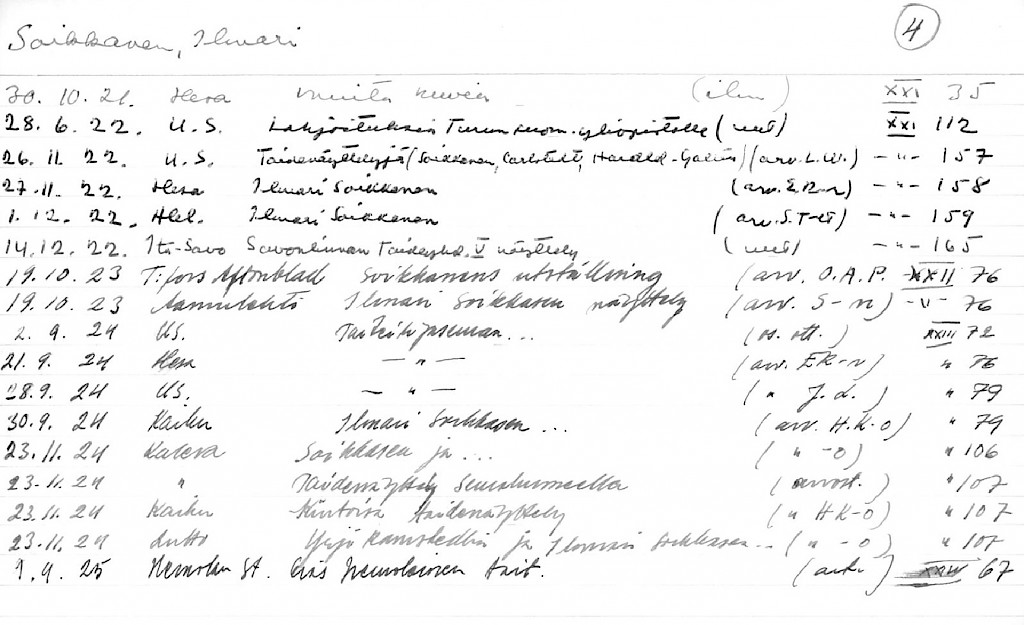 Soikkanen, Ilmari 4
30. 10. 21. Hesa muita kuvia (ilm) XXI 35
28. 6. 22. U.S. Lahjoituksia Turun suom. yliopistolle (uut) XXI 112
26. 11. 22. U.S. Taidenäyttelyjä (Soikkanen, Carlstedt, Harald-Gallen) (arv. L.W.) -"- 157
27. 11. 22. Hesa Ilmari Soikkanen (arv. E.R-r) -"- 158
1. 12. 22. Hbl. Ilmari Soikkanen (arv. S.T-lt) -"- 159
14. 12. 22. Itä-Savo Savonlinnan Taideyhd. V näyttely (uut) -"- 165
19. 10. 23 T:fors Aftonblad Soikkanens utställning (arv. O.A.P. XXII 76
19. 10. 23 Aamulehti Ilmari Soikkasen näyttely (arv. S-n) -"- 76
2. 9. 24 US. Taiteilijaseuran... (os. ott.) XXIII 72
21. 9. 24 Hesa -"- (arv. ER-r) " 76
28. 9. 24 US. -"- (" J.L.) " 79
30. 9. 24 Kaiku Ilmari Soikkasen ... (arv. H.K-o) " 79
23. 11. 24 Kaleva Soikkasen ja ... (" -o) " 106
23. 11. 24 " Taidenäyttely Seurahuoneella (arvost.) " 107
23. 11. 24 Kaiku Kiintoisa taidenäyttely (" HK-o) " 107
23. 11. 24 Yrjö Ramstedtin ja Ilmari Soikkasen... (" -o) " 107
1. 9. 25 (art.) XXIV 67